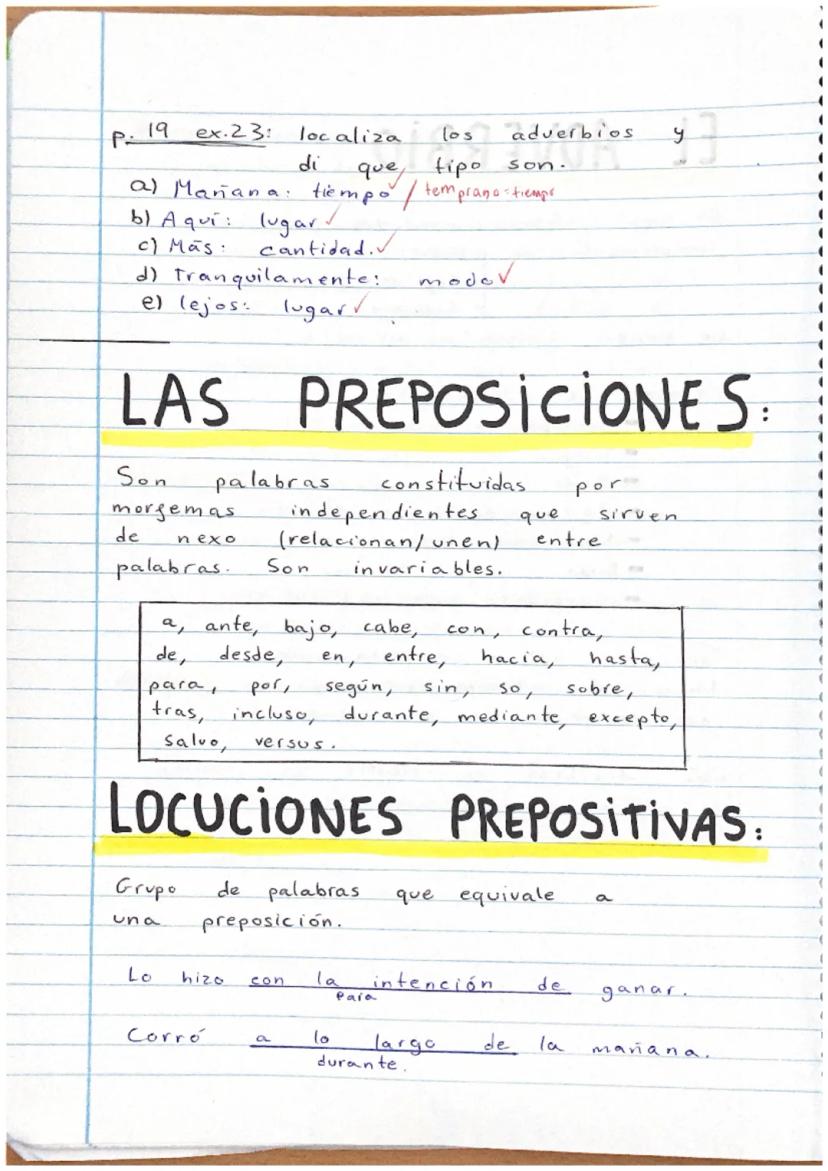 p. 19 ex.23: localiza los adverbios y
di que tipo son.
a) Mañana: tiempo / temprano = tiempo
b) Aquí: lugar
c) Más: cantidad.
d) Tranquilamente: modo
e) lejos: lugar
LAS PREPOSICIONES:
Son palabras constituidas por
morfemas independientes que sirven
de nexo (relacionan/unen) entre
palabras. Son invariables.
a, ante, bajo, cabe, con, contra,
de, desde, en, entre, hacia, hasta,
para, por, según, sin, so, sobre,
tras, incluso, durante, mediante, excepto,
salvo, versus.
LOCUCIONES PREPOSITIVAS:
Grupo de palabras que equivale a
una preposición.
Lo hizo con la intención de ganar.
para
Corró a lo largo de la mañana.
durante.